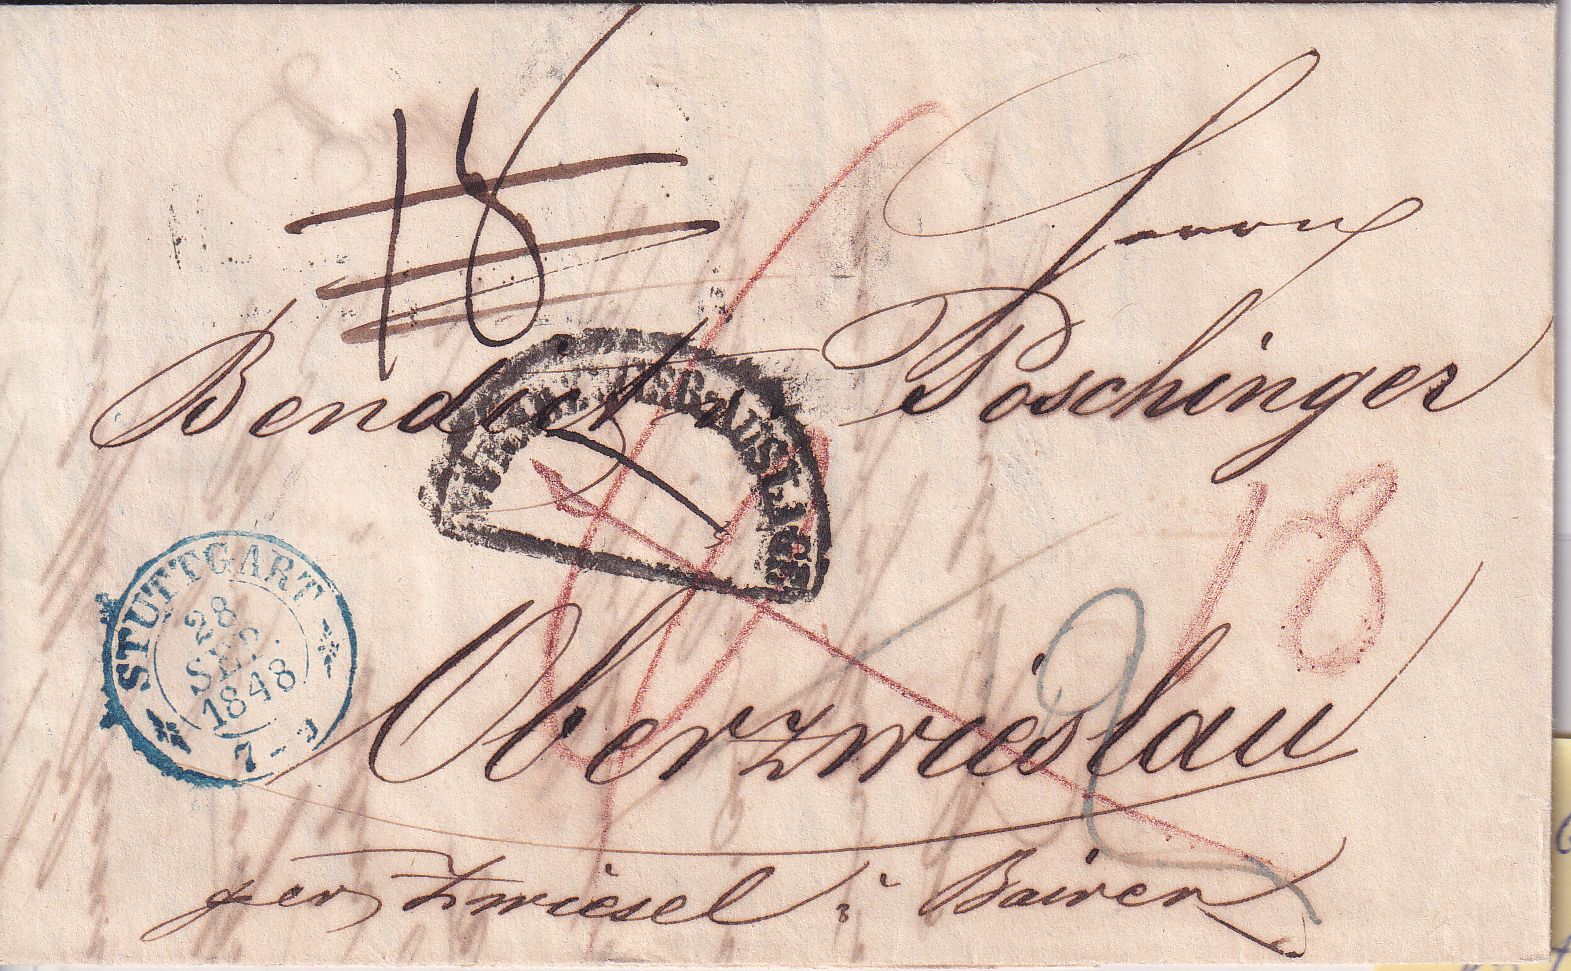 18
Herrn
Bendict v. Poschinger
AUSLAGE
18
STUTTGART
28
SEP.
1848
7-
2
Oberzwieslau
per Zwiesel i Baiern